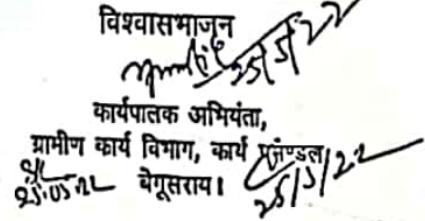 विश्वासभाजन
25/5/22
कार्यपालक अभियंता,
ग्रामीण कार्य विभाग, कार्य प्रमंण्डल
25.05.22 बेगूसराय। 25/5/22